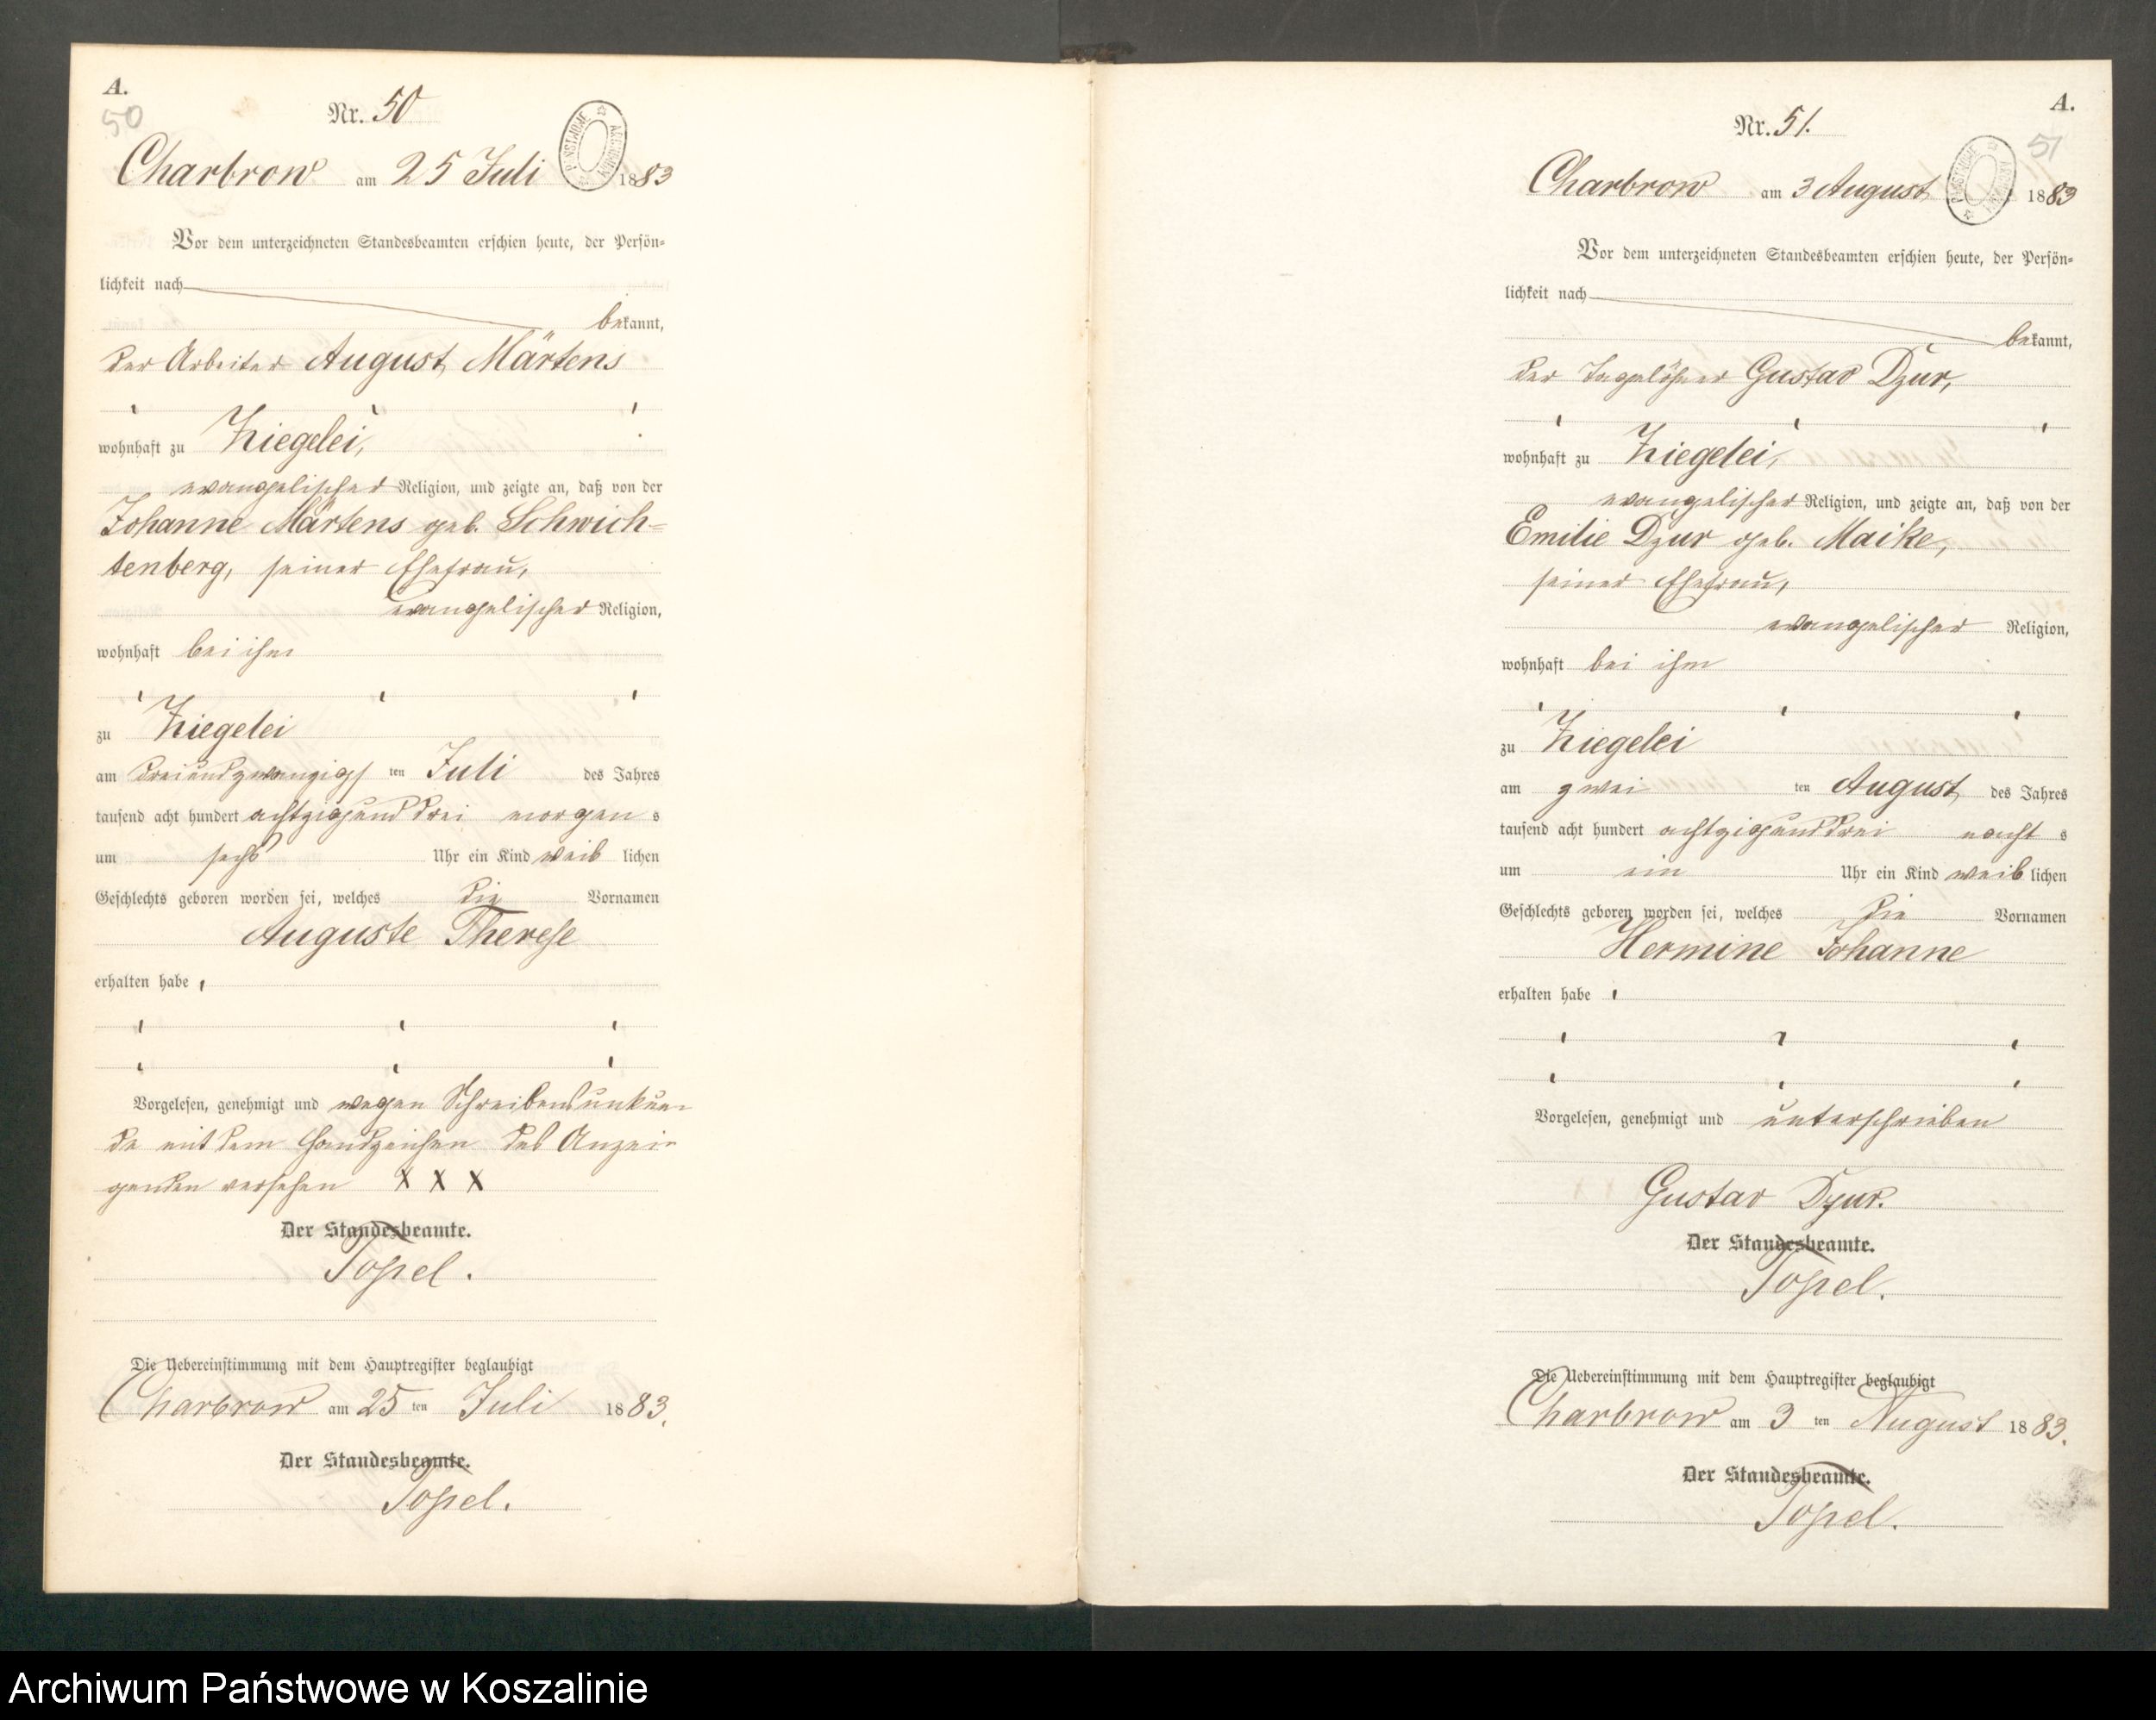 A.
50
Nr. 50
Charbrow am 25 Juli 1883
Vor dem unterzeichneten Standesbeamten erschien heute, der Persön-
lichkeit nach
bekannt,
der Arbeiter August Märtens
wohnhaft zu Ziegelei,
evangelischer Religion, und zeigte an, daß von der
Johanne Märtens geb. Schwich-
tenberg, seiner Ehefrau,
evangelischer Religion,
wohnhaft bei ihm
zu Ziegelei
am dreiundzwanzigsten Juli des Jahres
tausend acht hundert achtzigunddrei morgens
um sechs Uhr ein Kind weiblichen
Geschlechts geboren worden sei, welches die Vornamen
Auguste Therese
erhalten habe
Vorgelesen, genehmigt und wegen Schreibensunkun-
de mit dem Handzeichen des Anzei-
genden versehen X X X
Der Standesbeamte.
Topel.
Die Uebereinstimmung mit dem Hauptregister beglaubigt
Charbrow am 25ten Juli 1883.
Der Standesbeamte.
Topel.
A.
51
Nr. 51.
Charbrow am 3 August 1883
Vor dem unterzeichneten Standesbeamten erschien heute, der Persön-
lichkeit nach
bekannt,
der Tagelöhner Gustav Dzur,
wohnhaft zu Ziegelei,
evangelischer Religion, und zeigte an, daß von der
Emilie Dzur geb. Maike,
seiner Ehefrau,
evangelischer Religion,
wohnhaft bei ihm
zu Ziegelei
am zweiten August des Jahres
tausend acht hundert achtzigunddrei nachts
um ein Uhr ein Kind weiblichen
Geschlechts geboren worden sei, welches die Vornamen
Hermine Johanne
erhalten habe
Vorgelesen, genehmigt und unterschrieben
Gustav Dzur.
Der Standesbeamte.
Topel.
Die Uebereinstimmung mit dem Hauptregister beglaubigt
Charbrow am 3ten August 1883.
Der Standesbeamte.
Topel.
Archiwum Państwowe w Koszalinie